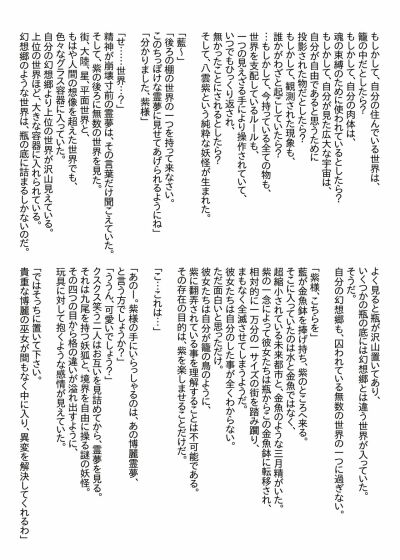 もしかして、自分の住んでいる世界は、
籠の中だとしたら？
もしかして、自分の肉体は、
魂の束縛のために使われているとしたら？
もしかして、自分が見た広大な宇宙は、
自分が自由であると思うために
投影された物だとしたら？
もしかして、観測された現象も、
誰かがわざと起こしていたら？
…もしかして、今持っている全ての物も、
世界を支配しているルールも、
一つの見えざる手により操作されていて、
いつでもひっくり返され、
無かったことにされるとしたら？
そして、八雲紫という純粋な妖怪が生まれた。
「藍～」
「後ろの棚の世界の一つを持って来なさい。
このちっぽけな霊夢に見せてあげられるようにね」
「分かりました、紫様」
「せ……世界…？」
精神が崩壊寸前の霊夢は、その言葉だけ聞こえていた。
そして、紫の後ろに無数の世界を見た。
街、大陸、星、平面世界と、
もはや人間の想像を超えた世界でも、
色々なグラス容器に入っていた。
自分の幻想郷より上位の世界が沢山見えている。
上位の世界ほど、大きな容器に入れられている。
幻想郷のような世界は、瓶の底に詰まるしかないのだ。
よく見ると瓶が沢山置いてあり、
いくつかの瓶の底には幻想郷とは違う世界が入っていた。
そうだ。
自分の幻想郷も、囚われている無数の世界の一つに過ぎない。
「紫様、こちらを」
藍が金魚鉢を捧げ持ち、紫のところへ来る。
そこに入っていたのは水と金魚ではなく、
超縮小されている未来都市と、金魚のような三月精がいた。
紫の一念によって彼女たちは僅かからこの金魚鉢に転移され、
相対的に一万分の一サイズの街を踏み躙り、
まもなく全滅させてしまうようだ。
彼女たちは自分のした事が全くわからない。
ただ面白いと思っただけだ。
彼女たちは自分が籠の鳥のように、
紫に翻弄されている事を理解することは不可能である。
その存在の目的は、紫を楽しませることだけだ。
「こ…これは…」
「あのー。紫様の手にいらっしゃるのは、あの博麗霊夢、
と言う方でしょうか？」
「ううん、可愛いでしょう？」
クスクス笑う二人はお互いを見詰めてから、霊夢を見る。
それは九尾を持つ妖狐と、境界を自由に操る謎の妖怪。
その四つの目から格の違いが溢れ出すように、
玩具に対して抱くような感情が見えていた。
「ではそっちに置いて下さい。
貴重な博麗の巫女が間もなく中に入り、異変を解決してくれるわ」